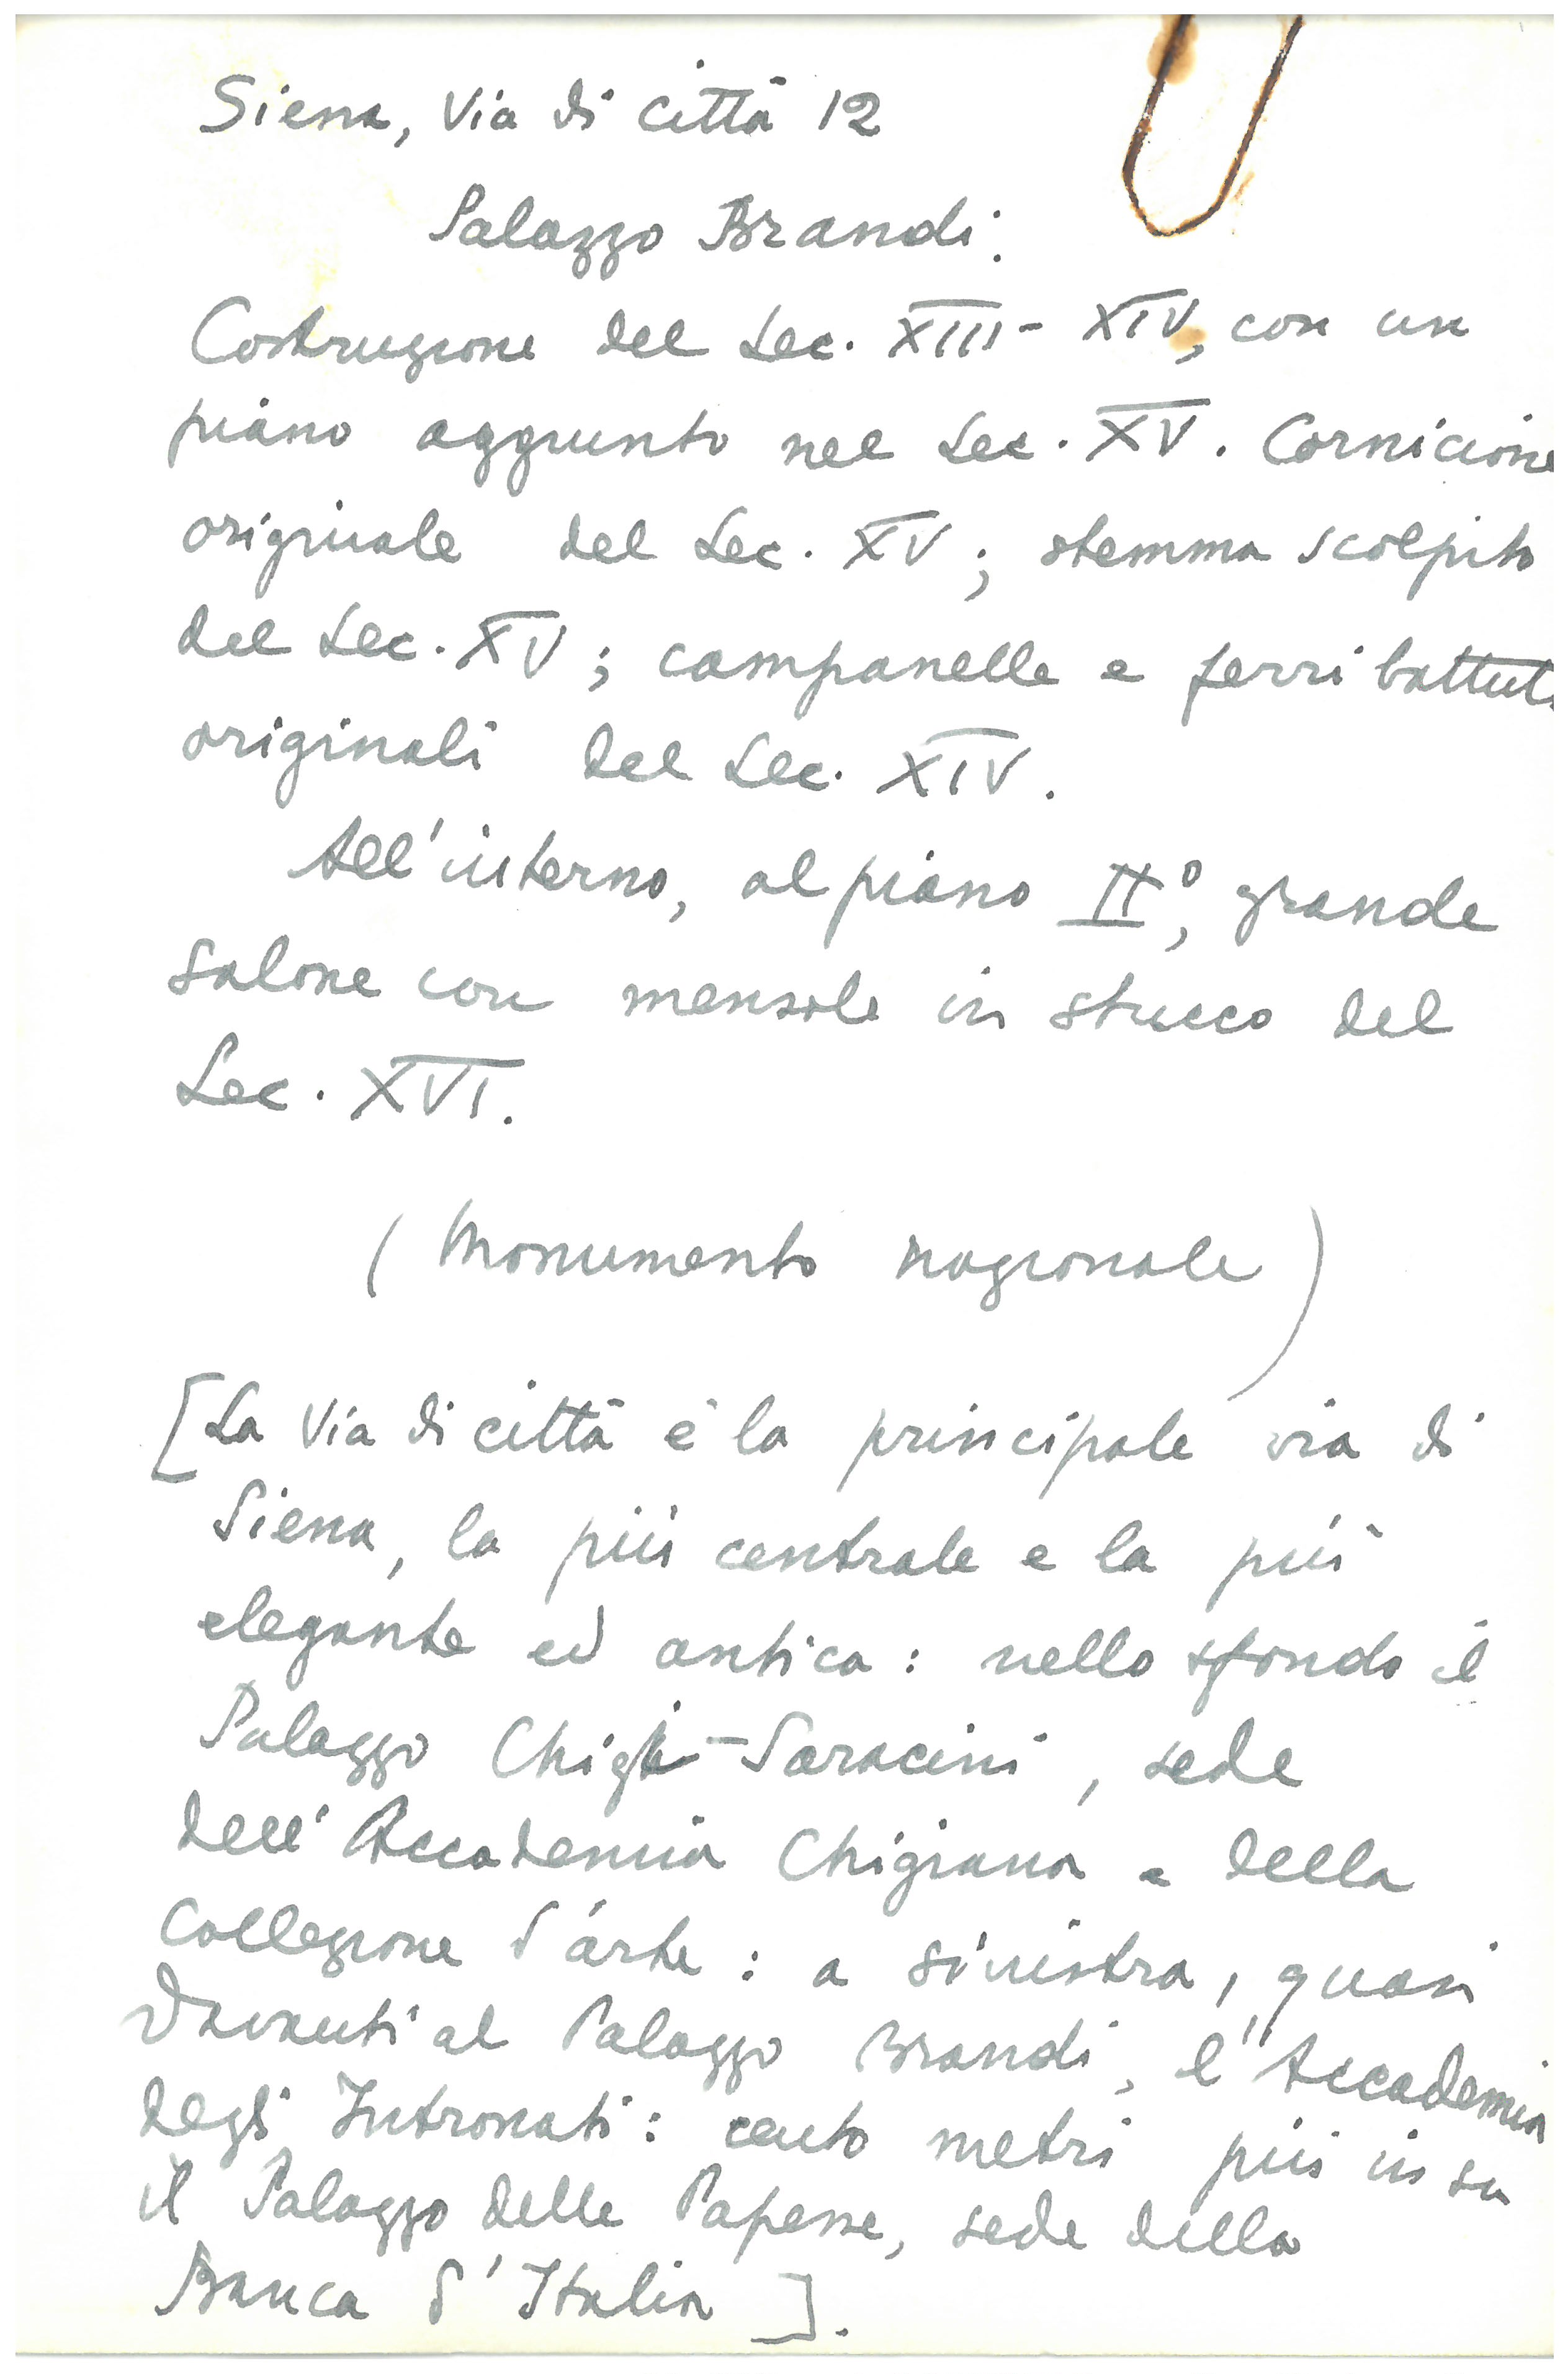 Siena, Via di città 12
Palazzo Brandi:
Costruzione del Sec. XIII - XIV, con un
piano aggiunto nel Sec. XV. Cornicione
originale del Sec. XV; stemma scolpito
del Sec. XV; campanelle e ferri battuti
originali del Sec. XIV.
All'interno, al piano II°, grande
salone con mensole in stucco del
Sec. XVI.
(Monumento nazionale)
[La Via di città è la principale via di
Siena, la più centrale e la più
elegante ed antica: nello sfondo il
Palazzo Chigi-Saracini, sede
dell'Accademia Chigiana e della
Collezione d'arte: a sinistra, quasi
davanti al Palazzo Brandi, l'Accademia
degli Intronati: cento metri più in su
il Palazzo delle Papesse, sede della
Banca d'Italia].